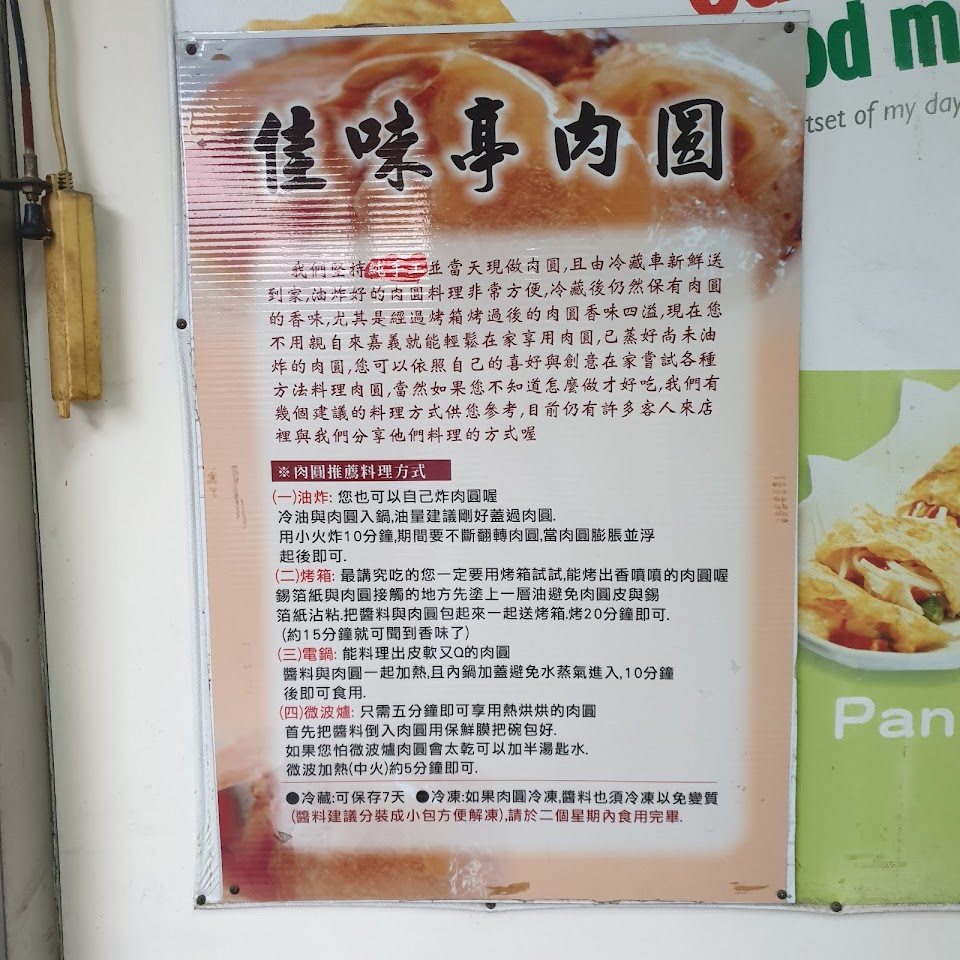 佳味亭肉圓
我們堅持純手工並當天現做肉圓,且由冷藏車新鮮送
到家,油炸好的肉圓料理非常方便,冷藏後仍然保有肉圓
的香味,尤其是經過烤箱烤過後的肉圓香味四溢,現在您
不用親自來嘉義就能輕鬆在家享用肉圓,已蒸好尚未油
炸的肉圓,您可以依照自己的喜好與創意在家嘗試各種
方法料理肉圓,當然如果您不知道怎麼做才好吃,我們有
幾個建議的料理方式供您參考,目前仍有許多客人來店
裡與我們分享他們料理的方式喔
※肉圓推薦料理方式
(一)油炸: 您也可以自己炸肉圓喔
冷油與肉圓入鍋,油量建議剛好蓋過肉圓.
用小火炸10分鐘,期間要不斷翻轉肉圓,當肉圓膨脹並浮
起後即可.
(二)烤箱: 最講究吃的您一定要用烤箱試試,能烤出香噴噴的肉圓喔
錫箔紙與肉圓接觸的地方先塗上一層油避免肉圓皮與錫
箔紙沾粘.把醬料與肉圓包起來一起送烤箱.烤20分鐘即可.
(約15分鐘就可聞到香味了)
(三)電鍋: 能料理出皮軟又Q的肉圓
醬料與肉圓一起加熱,且內鍋加蓋避免水蒸氣進入,10分鐘
後即可食用.
(四)微波爐: 只需五分鐘即可享用熱烘烘的肉圓
首先把醬料倒入肉圓用保鮮膜把碗包好.
如果您怕微波爐肉圓會太乾可以加半湯匙水.
微波加熱(中火)約5分鐘即可.
●冷藏:可保存7天 ●冷凍:如果肉圓冷凍,醬料也須冷凍以免變質
(醬料建議分裝成小包方便解凍),請於二個星期內食用完畢.
od m
tset of my day
Pan